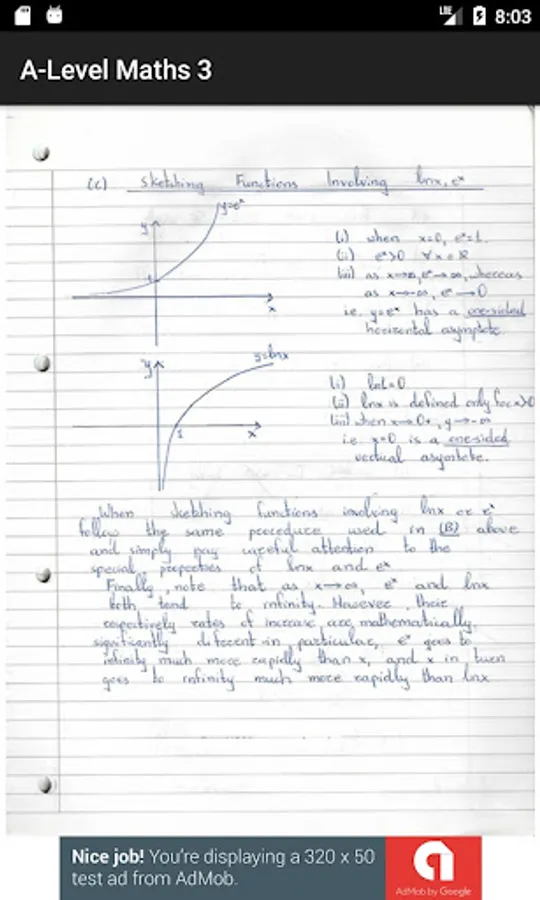 LTE 8:03
A-Level Maths 3
(c) Sketching Functions Involving lnx, eˣ
y=eˣ
y
(i) when x=0, eˣ=1.
(ii) eˣ>0 ∀x∈ℝ
1
(iii) as x→∞, eˣ→∞, whereas
as x→-∞, eˣ→0
x
i.e. y=eˣ has a one-sided
horizontal asymptote.
y=lnx
y
(i) ln1=0
(ii) lnx is defined only for x>0
(iii) when x→0+, y→-∞
1
x
i.e x=0 is a one-sided
vertical asymtote.
When sketching functions involving lnx or eˣ
follow the same procedure used in (B) above
and simply pay careful attention to the
special properties of lnx and eˣ
Finally, note that as x→∞, eˣ and lnx
both tend to infinity. However, their
respectively rates of increase are, mathematically,
significantly different in particular, eˣ goes to
infinity much more rapidly than x, and x in turn
goes to infinity much more rapidly than lnx
Nice job! You're displaying a 320 x 50
test ad from AdMob.
AdMob by Google